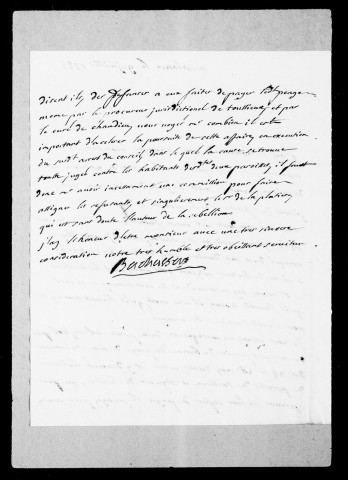 disent ils, des deffances a eux faites de payer led.t peage
meme par le procureur jurisdictionel de toussieux, et par
le curé de chandieu, vous voyés m.r combien il est
important d'accelerer la poursuite de cette affaire, en execution
du sud.t arret du conseil dans le quel la cause se trouve
toutte jugée contre les habitants desd.tes deux paroisses, il faut
donc m.r avoir incessament une commission pour faire
assigner les refusants, et singulierement le s.r de la plation
qui est sans doute l'auteur de la rebellion
j'ay l'honneur d'etre monsieur avec une tres sincere
consideration votre tres humble et tres obeissant serviteur